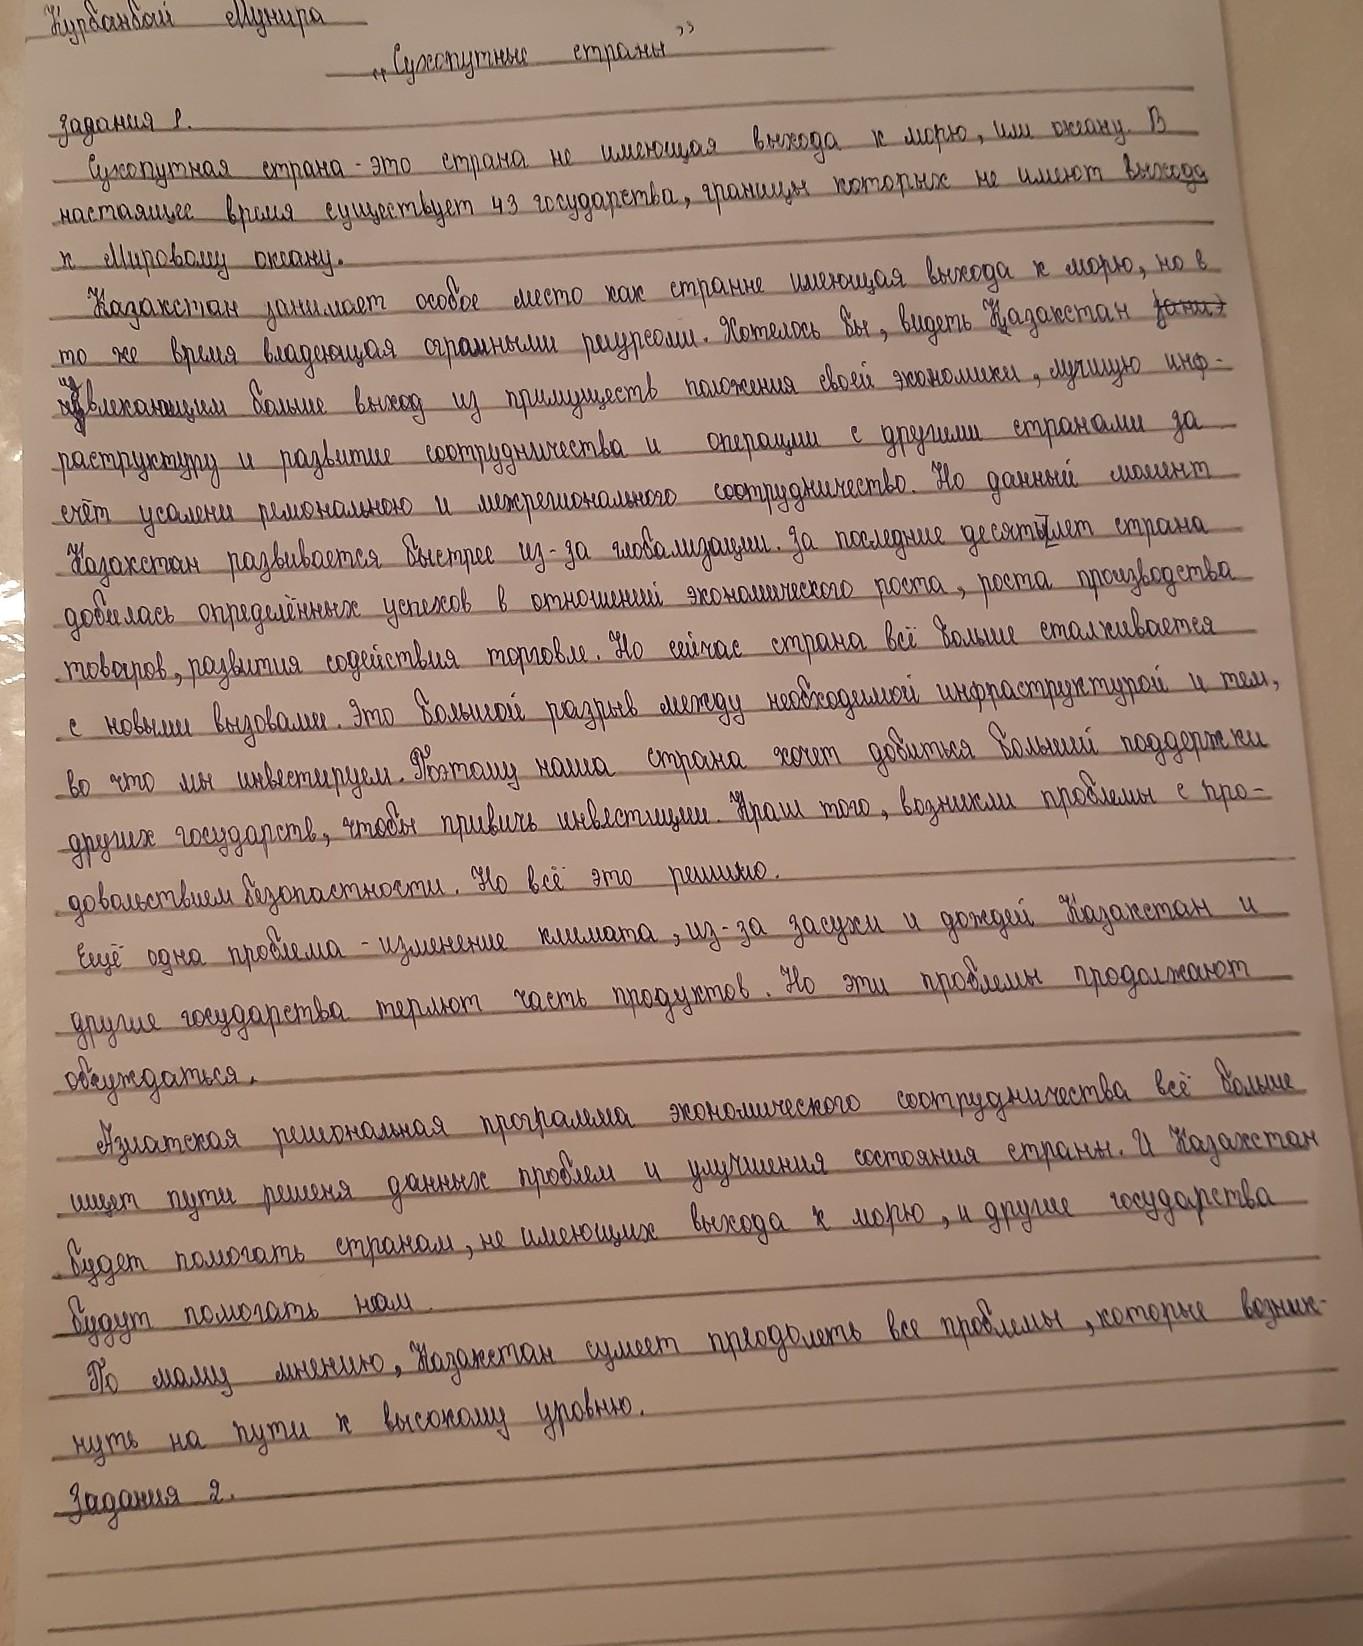 Курбанбай Мунира
„Сухопутные страны”
Задания 1.
Сухопутная страна - это страна не имеющая выхода к морю, или океану. В
настаящее время существует 43 государства, границы которых не имеют выхода
к Мировому океану.
Казахстан занимает особое место как странне имеющая выхода к морю, но в
то же время владеющая огромными ресурсоми. Хотелось бы, видеть Казахстан
извлекающим больше выход из примуществ положения своей экономики, лучшую инф-
раструктуру и развитие сотрудничества и операции с другими странами за
счёт усалени регионалоного и межрегионального сотрудничество. Но данный момент
Казахстан развивается быстрее из-за глобализации. За последние десятьлет страна
добилась определённых успехов в отношений экономического роста, роста производства
товаров, развития содействия торговле. Но сейчас страна всё больше сталкивается
с новыми вызовами. Это большой разрыв между необходимой инфраструктурой и тем,
во что мы инвестируем. Поэтому наша страна хочет добиться больший поддержки
других государств, чтобы привичь инвестиции. Краш того, возникли проблемы с про-
довольствием безопастности. Но всё это решимо.
Ещё одна проблема - изменение климата, из-за засухи и дождей Казахстан и
другие государства теряют часть продуктов. Но эти проблемы продолжают
обсуждаться.
Азиатская региональная программа экономического сотрудничества всё больше
ищет пути решеня данных проблем и улучшения состояния страны. И Казахстан
будет помогать странам, не имеющих выхода к морю, и другие государства
будут помогать нам.
По маму мнению, Казахстан сумеет преодолеть все проблемы, которые возник-
нуть на пути к высокому уровню.
Задания 2.